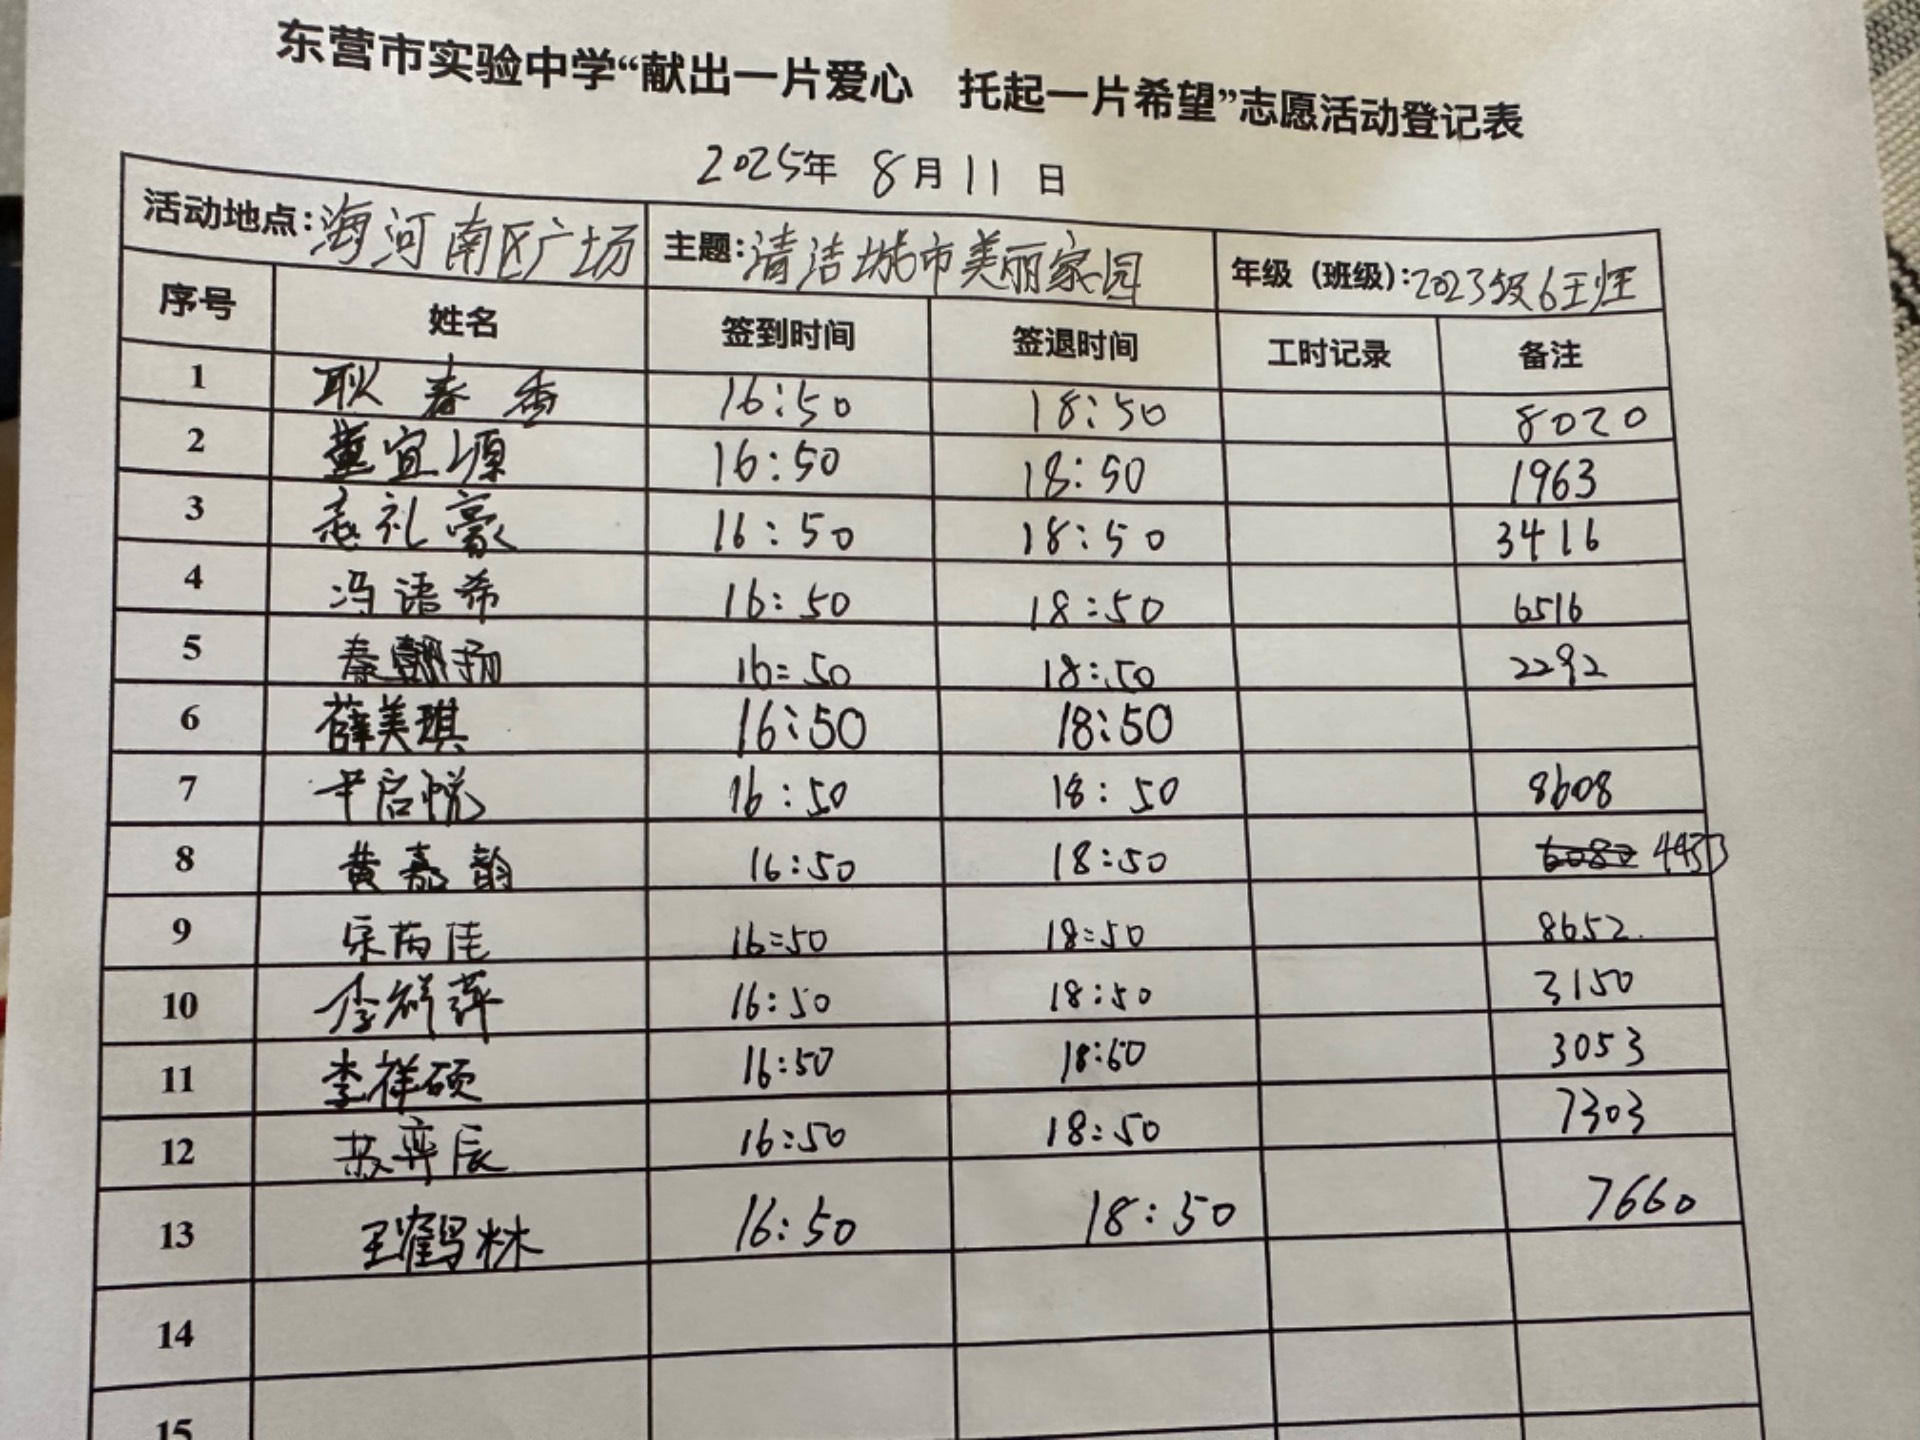 东营市实验中学“献出一片爱心 托起一片希望”志愿活动登记表
2025年 8月11日
活动地点:海河南区广场 主题:清洁城市美丽家园 年级（班级）:2023级6王烓
序号 姓名 签到时间 签退时间 工时记录 备注
1 耿春香 16:50 18:50 8020
2 董宜源 16:50 18:50 1963
3 赵礼豪 16:50 18:50 3416
4 冯语希 16:50 18:50 6516
5 秦朝扬 16:50 18:50 2292
6 薛美琪 16:50 18:50
7 尹启悦 16:50 18:50 8608
8 黄嘉韵 16:50 18:50 6080 4953
9 宋芮佳 16:50 18:50 8652.
10 李祥萍 16:50 18:50 3150
11 李祥硕 16:50 18:60 3053
12 苏弈辰 16:50 18:50 7303
13 王鹤林 16:50 18:50 7660
14
15